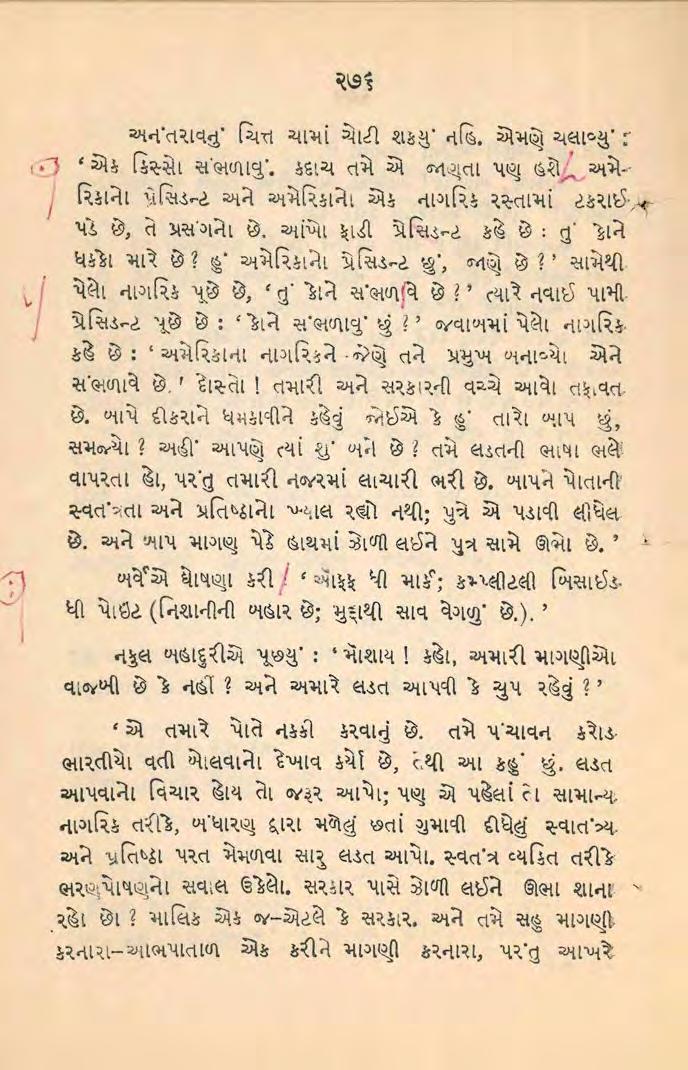 ૨૭૬
અનંતરાવનું ચિત્ત ચામાં ચોટી શકયું નહિ. એમણે ચલાવ્યું :
‘ એક કિસ્સો સંભળાવું. કદાચ તમે એ જાણતા પણ હશો અમે-
રિકાનો પ્રેસિડન્ટ અને અમેરિકાનો એક નાગરિક રસ્તામાં ટકરાઈ
પડે છે, તે પ્રસંગનો છે. આંખો ફાડી પ્રેસિડન્ટ કહે છે : તું કોને
ધકકો મારે છે ? હું અમેરિકાનો પ્રેસિડન્ટ છું, જાણે છે ? ’ સામેથી
પેલો નાગરિક પૂછે છે, ‘ તું કોને સંભળાવે છે ? ’ ત્યારે નવાઈ પામી
પ્રેસિડન્ટ પૂછે છે : ‘ કોને સંભળાવું છું ? ’ જવાબમાં પેલો નાગરિક
કહે છે : ‘ અમેરિકાના નાગરિકને - જેણે તને પ્રમુખ બનાવ્યો એને
સંભળાવે છે. ’ દોસ્તો ! તમારી અને સરકારની વચ્ચે આવો તફાવત
છે. બાપે દીકરાને ધમકાવીને કહેવું જોઈએ કે હું તારો બાપ છું,
સમજ્યો ? અહીં આપણે ત્યાં શું બને છે ? તમે લડતની ભાષા ભલે
વાપરતા હો, પરંતુ તમારી નજરમાં લાચારી ભરી છે. બાપને પોતાની
સ્વતંત્રતા અને પ્રતિષ્ઠાનો ખ્યાલ રહ્યો નથી; પુત્રે એ પડાવી લીધેલ
છે. અને બાપ માગણ પેઠે હાથમાં ઝોળી લઈને પુત્ર સામે ઊભો છે. ’
બર્વેએ ઘોષણા કરી ‘ ઑફફ ધી માર્ક; કમ્પ્લીટલી બિસાઈડ
ધી પોઇંટ (નિશાનીની બહાર છે; મુદ્દાથી સાવ વેગળું છે.). ’
નકુલ બહાદુરીએ પૂછયું : ‘ મોશાય ! કહો, અમારી માગણીઓ
વાજબી છે કે નહીં ? અને અમારે લડત આપવી કે ચુપ રહેવું ? ’
‘ એ તમારે પોતે નકકી કરવાનું છે. તમે પંચાવન કરોડ
ભારતીયો વતી બોલવાનો દેખાવ કર્યો છે, તેથી આ કહું છું. લડત
આપવાનો વિચાર હોય તો જરૂર આપો; પણ એ પહેલાં તો સામાન્ય
નાગરિક તરીકે, બંધારણ દ્વારા મળેલું છતાં ગુમાવી દીધેલું સ્વાતંત્ર્ય
અને પ્રતિષ્ઠા પરત મેમળવા સારુ લડત આપો. સ્વતંત્ર વ્યકિત તરીકે
ભરણપોષણનો સવાલ ઉકેલો. સરકાર પાસે ઝોળી લઈને ઊભા શાના
રહો છો ? માલિક એક જ–એટલે કે સરકાર. અને તમે સહુ માગણી
કરનારા–આભપાતાળ એક કરીને માગણી કરનારા, પરંતુ આખરે